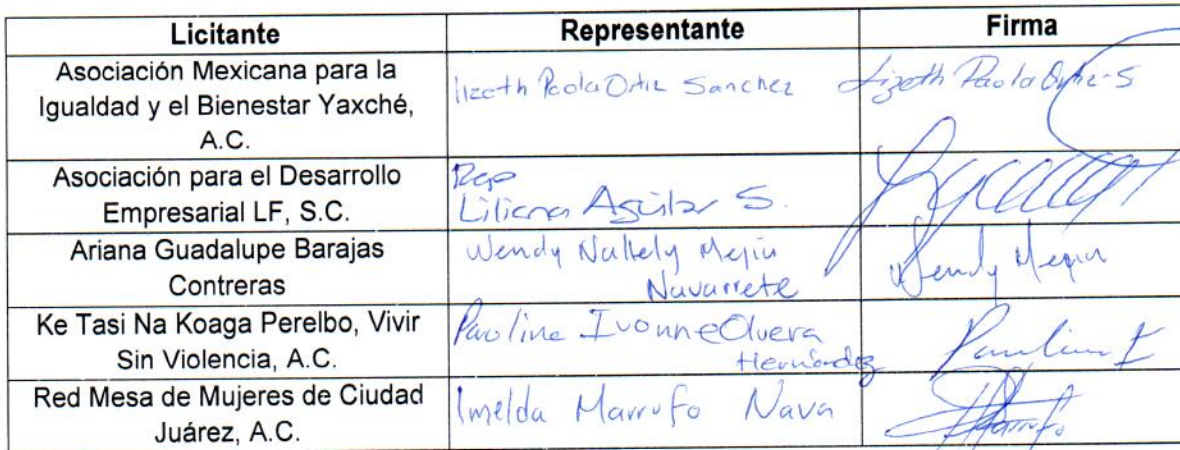 Licitante Representante Firma
Asociación Mexicana para la
Igualdad y el Bienestar Yaxché,
A.C.
lizeth Paola Ortiz Sanchez
Lizeth Paola Ortiz-S
Asociación para el Desarrollo
Empresarial LF, S.C.
Rep
Liliana Aguilar S.
Ariana Guadalupe Barajas
Contreras
Wendy Nallely Mejia
Navarrete
Wendy Mejia
Ke Tasi Na Koaga Perelbo, Vivir
Sin Violencia, A.C.
Paulina Ivonne Olvera
Hernández
Red Mesa de Mujeres de Ciudad
Juárez, A.C.
Imelda Marrufo Nava